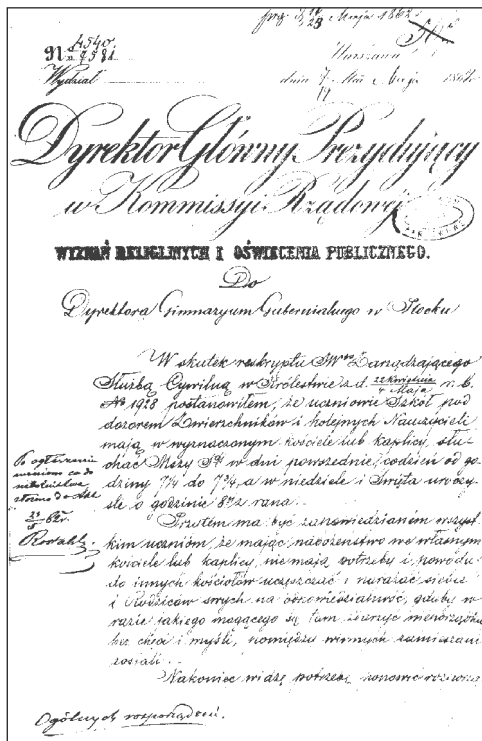 28 Maja 1862
№ 4540
7581
Wydział
Warszawa
dnia 7/19 Maja 1862
Dyrektor Główny Prezydujący
w Kommissyi Rządowej
WYZNAŃ RELIGIJNYCH I OŚWIECENIA PUBLICZNEGO.
Do
Dyrektora Gimnazyum Gubernialnego w Płocku
W skutek reskryptu JW Zarządzającego
Służbą Cywilną w Królestwie z d. 22 kwietnia / 4 Maja r. b.
№ 1928 postanowiłem, że uczniowie Szkół pod
dozorem Zwierzchników i kolejnych Nauczycieli
mają w wyznaczonym kościele lub kaplicy, słu-
chać Mszy Stéj w dni powszednie, codzień od go-
dziny 7¼ do 7¾, a w niedziele i Święta uroczy-
ste o godzinie 8½ z rana.
Po ogłoszeniu
uczniom co do
nabożeństwa
złożono do Akt
62 r.
Przytem ma być zapowiedzianém wszyst-
kim uczniom, że mając nabożeństwo we własnym
kościele lub kaplicy, nie mają potrzeby i powodu
do innych kościołów uczęszczać i narażać siebie
i Rodziców swych na odpowiedzialność, gdyby w
razie jakiego mogącego się tam zdarzyć nieporządku
bez chęci i myśli, pomiędzy winnych zamieszani
zostali.
Nakoniec widzę potrzebę ponowić
Ogólnych rozporządzeń.